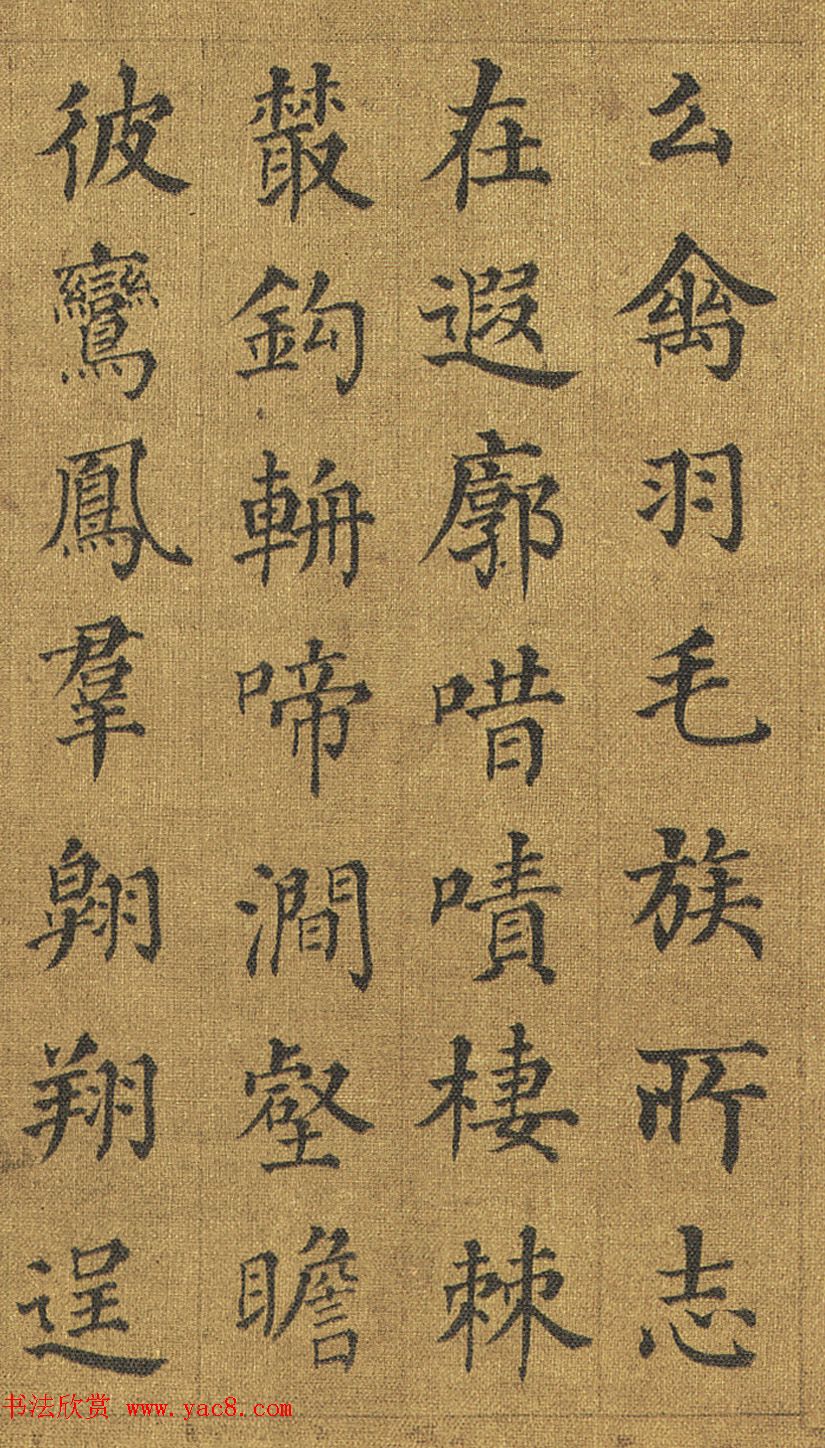 么禽羽毛族所志
在遐廓唶嘖棲棘
叢鈎輈啼澗壑瞻
彼鸞鳳羣翺翔逞
书法欣赏 www.yac8.com